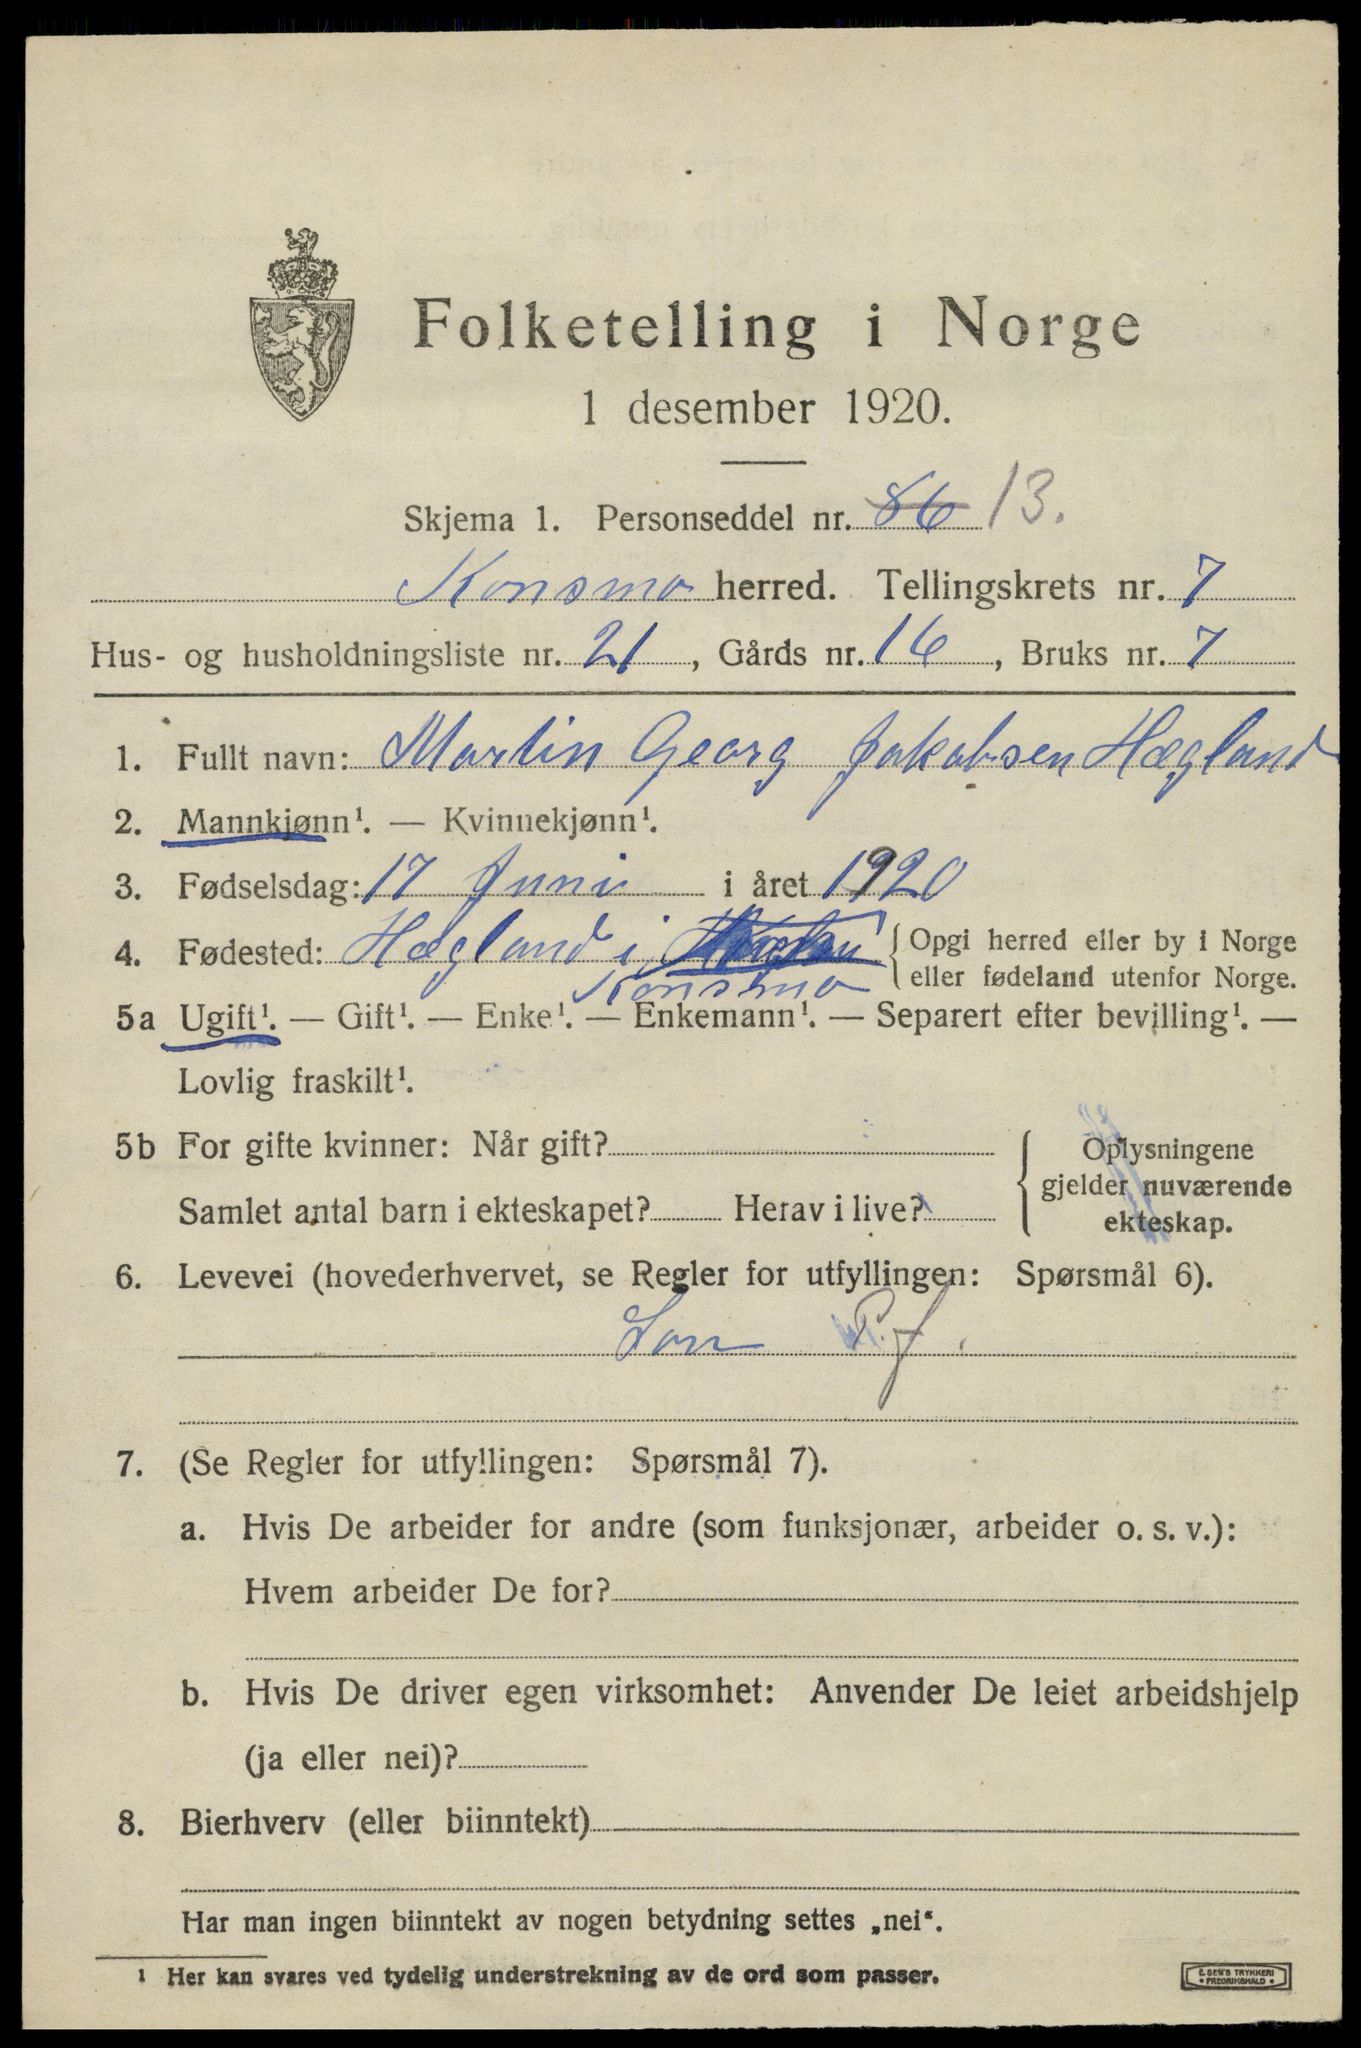 Folketelling i Norge
1 desember 1920.
Skjema 1. Personseddel nr. 86 13.
Konsmo herred. Tellingskrets nr. 7
Hus- og husholdningsliste nr. 21, Gårds nr. 16, Bruks nr. 7
1. Fullt navn: Martin Georg Jakobsen Hægland
2. Mannkjønn¹. — Kvinnekjønn¹.
3. Fødselsdag: 17 Juni i året 1920
4. Fødested: Hægland i { Opgi herred eller by i Norge
eller fødeland utenfor Norge.
Konsmo
5a Ugift¹. — Gift¹. — Enke¹. — Enkemann¹. — Separert efter bevilling¹. —
Lovlig fraskilt¹.
5b For gifte kvinner: Når gift? { Oplysningene
gjelder nuværende
Samlet antal barn i ekteskapet? Herav i live? ekteskap.
6. Levevei (hovederhvervet, se Regler for utfyllingen: Spørsmål 6).
Søn P.f.
7. (Se Regler for utfyllingen: Spørsmål 7).
a. Hvis De arbeider for andre (som funksjonær, arbeider o. s. v.):
Hvem arbeider De for?
b. Hvis De driver egen virksomhet: Anvender De leiet arbeidshjelp
(ja eller nei)?
8. Bierhverv (eller biinntekt)
Har man ingen biinntekt av nogen betydning settes „nei“.
¹ Her kan svares ved tydelig understrekning av de ord som passer.
E. SEM'S TRYKKERI
• FREDRIKSHALD •